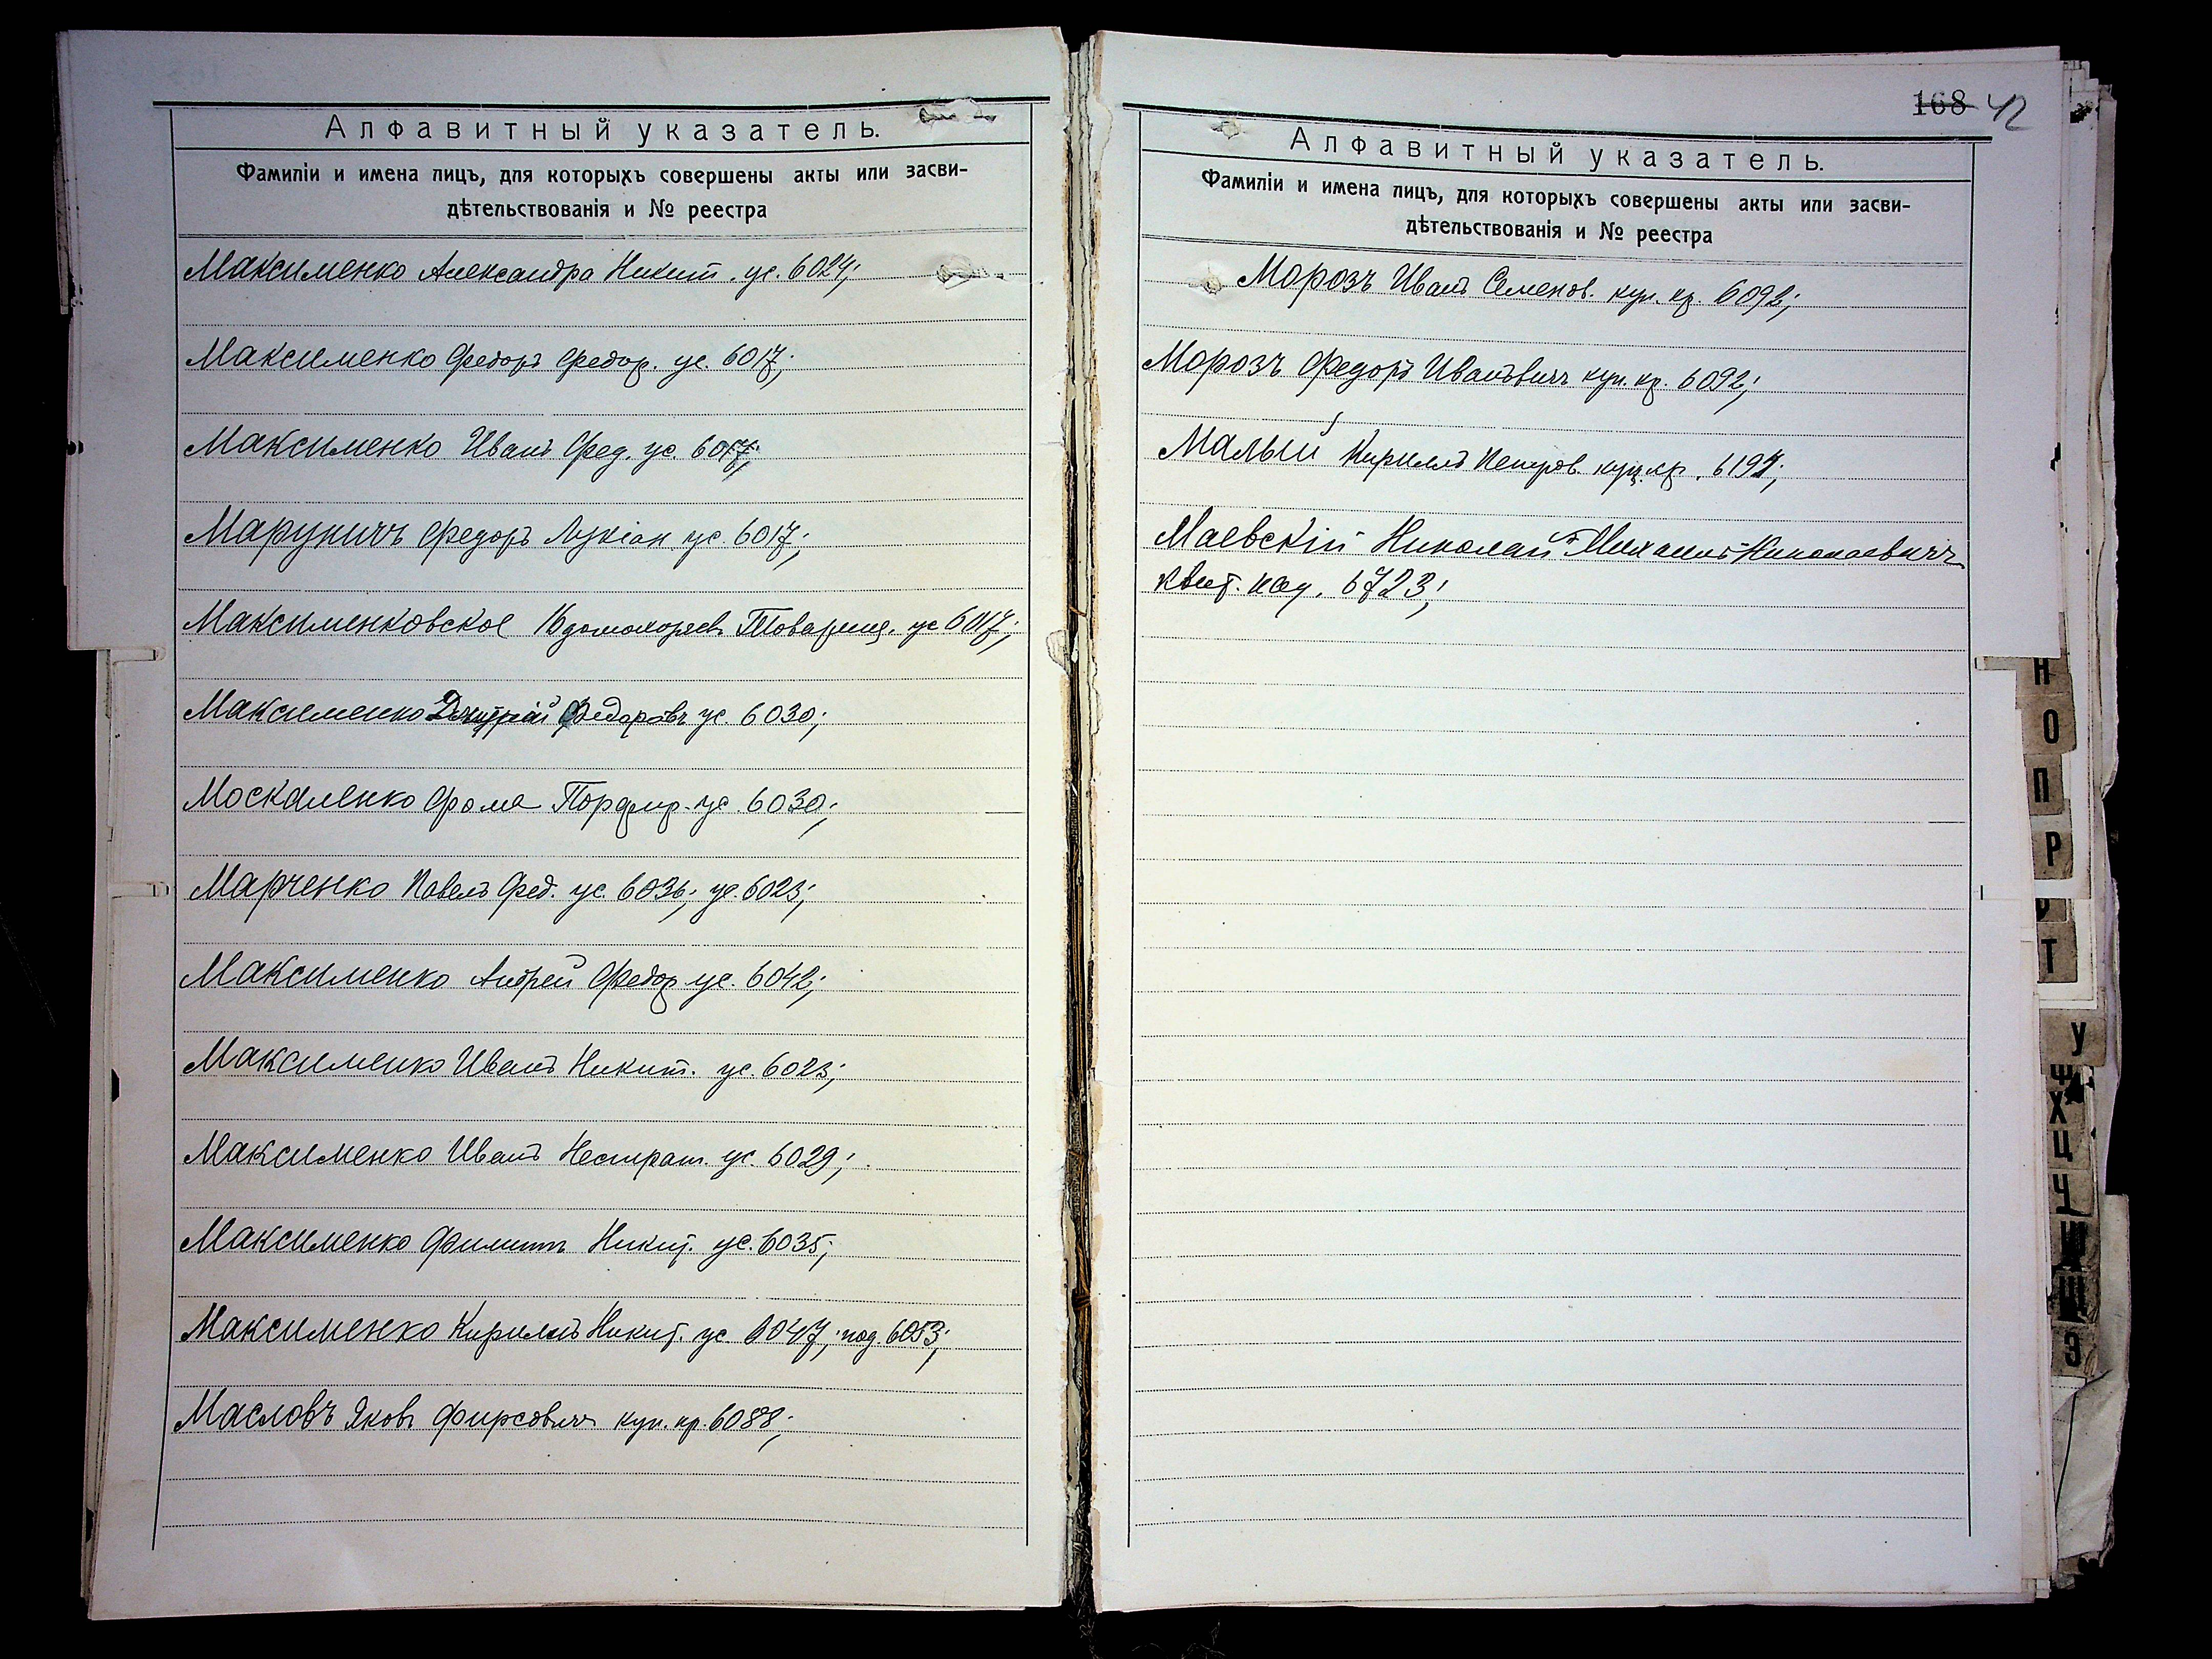 Алфавитный указатель.
Фамиліи и имена лицъ, для которыхъ совершены акты или засви-
дѣтельствованія и № реестра
Максименко Александра Никит. ус. 6024;
Максименко Федоръ Федор. ус. 6017;
Максименко Иванъ Фед. ус. 6017;
Маруничъ Федоръ Лукіан ус. 6017;
Максименковское 16 домохозяев. Товарищ. ус 6017;
Максименко Дмитрій Федоровъ ус. 6030;
Москаленко Фома Порфир. ус. 6030;
Марченко Павелъ Фед. ус. 6036; ус. 6023;
Максименко Андрей Федор ус. 6042;
Максименко Иванъ Никит. ус. 6023;
Максименко Иванъ Нестрат. ус. 6029;
Максименко Филиппъ Никит. ус. 6035;
Максименко Кириллъ Никит. ус. 6047; под. 6053;
Масловъ Яковъ Фирсовичъ куп. кр. 6088;
168 42
Алфавитный указатель.
Фамиліи и имена лицъ, для которыхъ совершены акты или засви-
дѣтельствованія и № реестра
Морозъ Иванъ Семенов. куп. кр. 6092;
Морозъ Федоръ Ивановичъ куп. кр. 6092;
Малый Кириллъ Петров. куп. кр. 6197;
Маевскій Николай Михаилъ Николаевичъ
квит. 6723;
Н
О
П
Р
Т
У
Ф
Х
Ц
Ч
Ш
Щ
Э